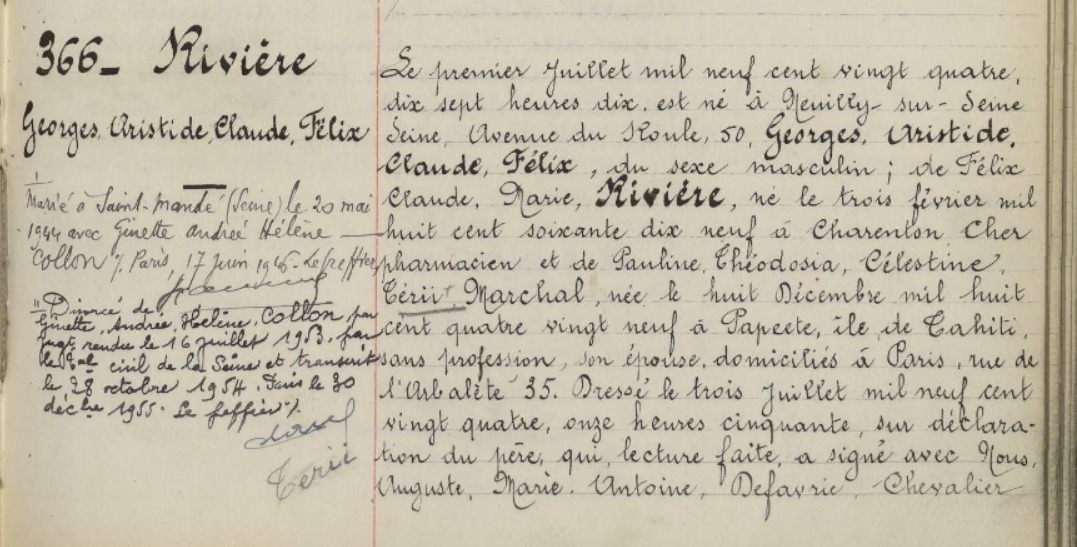 366_ Rivière
Georges, Aristide, Claude, Félix
Marié à Saint-Mandé (Seine) le 20 mai
1944 avec Ginette Andrée Hélène
Collon /. Paris, 17 Juin 1945. Le Greffier
"Divorcé de
Ginette, Andrée, Hélène, Collon, par
Jugt rendu le 16 juillet 1953. par
le Tal civil de la Seine et transcrit
le 28 octobre 1954. Paris le 30
décbre 1955. Le Greffier /.
Terii
Le premier Juillet mil neuf cent vingt quatre,
dix sept heures dix, est né à Neuilly-sur-Seine
Seine, Avenue du Roule, 50, Georges, Aristide,
Claude, Félix, du sexe masculin ; de Félix
Claude, Marie, Rivière, né le trois février mil
huit cent soixante dix neuf à Charenton Cher
pharmacien et de Pauline, Théodosia, Célestine,
Térii, Marchal, née le huit Décembre mil huit
cent quatre vingt neuf à Papeete, île de Tahiti,
sans profession, son épouse, domiciliés à Paris, rue de
l'Arbalète 35. Dressé le trois Juillet mil neuf cent
vingt quatre, onze heures cinquante, sur déclara-
tion du père, qui, lecture faite, a signé avec Nous,
Auguste, Marie, Antoine, Defavrie, Chevalier